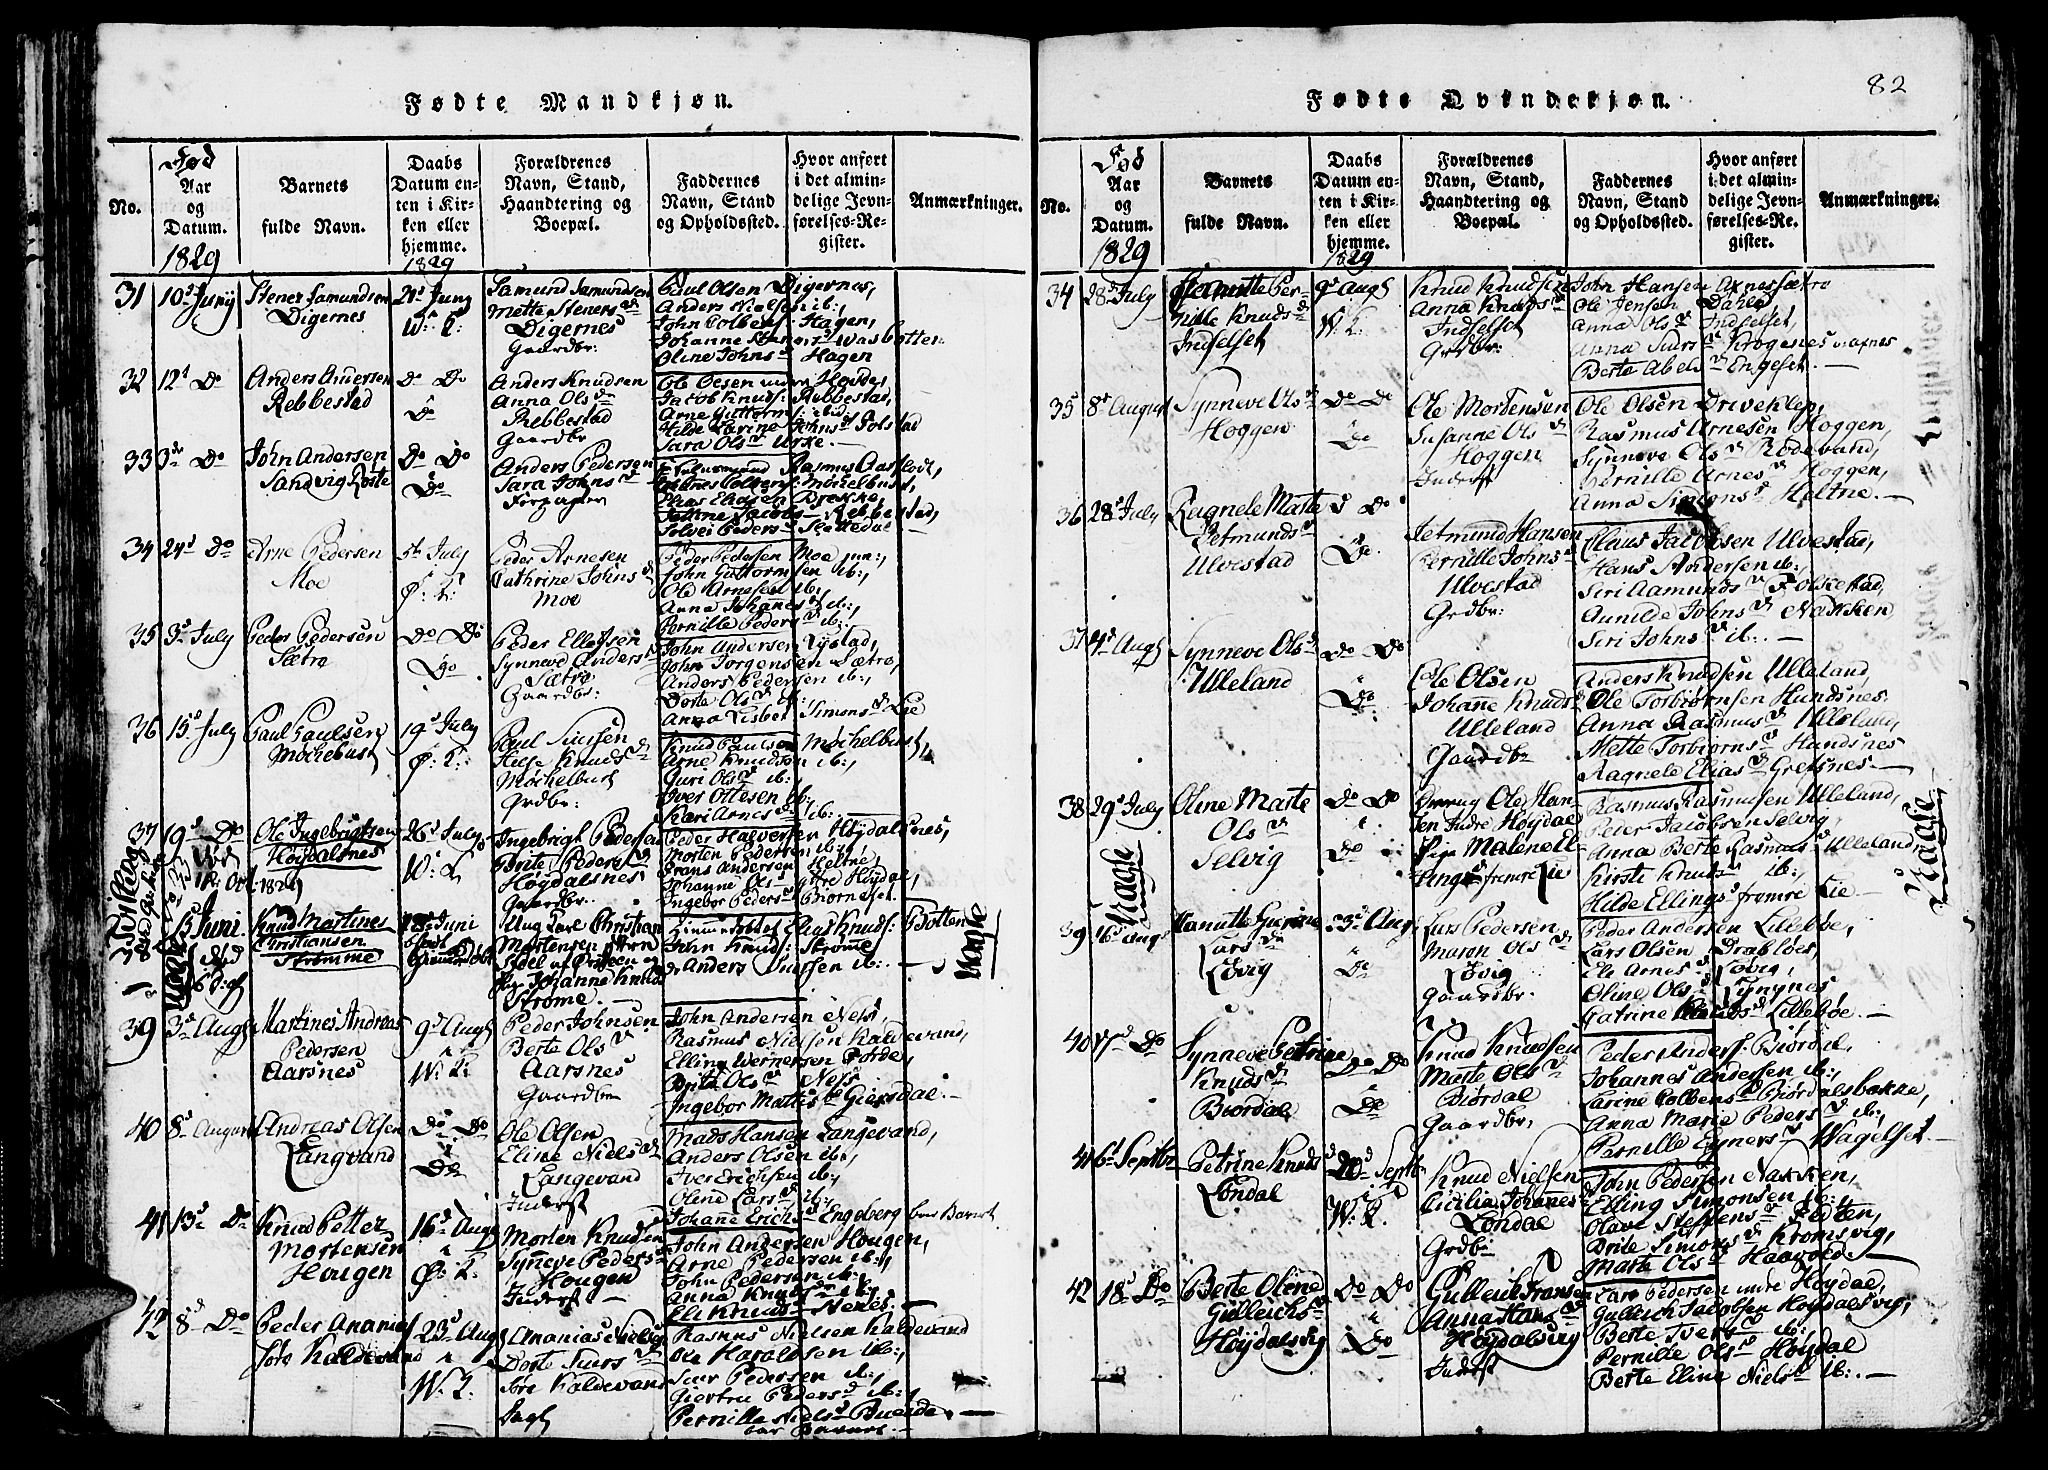 82
Fødte Mandkjøn.
No.
Fød
Aar
og
Datum.
1829
Barnets
fulde Navn.
Daabs
Datum en-
ten i Kir-
ken eller
hjemme.
1829
Forældrenes
Navn, Stand,
Haandtering og
Boepæl.
Faddernes
Navn, Stand
og Opholdssted.
Hvor anført
i det almin-
delige Jevn-
førelses-Re-
gister.
Anmærkninger.
31 10d Junij
Stener Samundsen
Digernes
21d Juny
W: K:
Samund Samundsen
Mette Stenersd
Digernes
Gaardbr:
Poul Olsen Digernes,
Anders Nielsen ib:,
John Colbens: Hagen,
Johanne Stenersd Wasbotten
Oline Johnsd Hagen
32 12d Do
Anders Andersen
Rebbestad
Do Do
Do
Anders Knudsen
Anna Olsd
Rebbestad
Gaardbr
Ole Olsen Hovde,
Jacob Knuds: Rebbestad,
Arne Guttorms: ibid
Sara Olsd Urke. —
33 3de Do
John Andersen
Sandvig
Do Do
Do
Anders Pedersen
Sara Johnsd
Forpagter
Rasmus Aarflodt,
Elias Eliasen Brække,
Solvei Pedersd Slettedal
34 24d Do
Arne Pedersen
Moe
5te July
Ø: K:
Peder Arnesen
Cathrine Johnsd
Moe
Peder Pedersen Moe
John Guttormsen ib:,
Ole Arnesen ib:,
Anna Johannesd ib:,
Pernille Pedersd ib:
35 3d July
Peder Pedersen
Sætre
Do Do
Do
Peder Ellefsen
Synneve Andersd
Sætre
Gaardbr:
John Andersen
John Jorgensen Sætre,
Anders Pedersen ib:,
Dorte Olsd ib:
Anna Lisbet Simonsd Lie
36 15d July
Paul Paulsen
Møchebust
19d July
Ø: K:
Paul
Knudsd
Møchelbust
Grdbr:
Knud Paulsen Møchelbust,
Arne Knudsen ib:,
Guri Olsd ib:,
Iver Ottesen ib:,
Kari Arnesd ib:
37 19d Do
Ole Ingebrigtsen
Høydalsnes
26d July
W: K
Ingebrigt Pedersen
Brite Pedersd
Høydalsnes
Gaardbr.
Peder Halversen Høydalsnes,
Morten Pedersen ib:,
Frans Andersen Heltne,
Johanne Olsd Høydal,
Ingebor Pedersd Biørneset
Juni
Knud Martines
Christiansen
Strømme
18d Juni
Ung Karl Christian
Mortensen
Pige Johanne Knudsd
Strøme.
Knuds: Botten
John Knuds: Strøme
Anders ib: —
Vaage
39 3d Augt
Martines Andreas
Pedersen
Aarsnes
9d Augt
W: K:
Peder Johnsen
Berte Olsd
Aarsnes
Gaardbr
John Andersen Næss,
Rasmus Nielsen Kaldevand,
Elling Wernersen Førde,
Brite Olsd Næss
Ingebor Giersdal. —
40 8d August
Andreas Olsen
Langvand
Do Do
Do
Ole Olsen
Eline Nielsd
Langevand
Inderst
Mads Hansen Langevand,
Anders Olsen ib:,
Iver Erichsen ib:,
Oline Larsd ib:,
Johanne Erichsd Engeberg bar Barnet.
41 13d Do
Knud Petter
Mortensen
Hougen
16d Augt
Ø: K:
Morten Knudsen
Synneve Pedersd
Hougen
Inderst
John Andersen Hougen,
Arne Pedersen ib:,
John Pedersen ib:,
Anna Knudsd ib:,
Eli Knudsd
42 8d Do
Peder Ananias
Søre Kaldevand
23d Augt
W: K.
Ananias Nielsen
Dorte
Søre Kaldevand
Rasmus Nielsen Kaldevand
Ole Haraldsen ib:,
Siur Pedersen ib:,
Giertru Pedersd ib:,
Pernille Nielsd —
bar Barnet. —
Fødte Qvindekjøn.
No.
Fød
Aar
og
Datum.
1829
Barnets
fulde Navn.
Daabs
Datum en-
ten i Kir-
ken eller
hjemme.
1829
Forældrenes
Navn, Stand,
Haandtering og
Boepæl.
Faddernes
Navn, Stand
og Opholdssted.
Hvor anført
i det almin-
delige Jevn-
førelses-Re-
gister.
Anmærkninger.
34 28d July
Per-
nille Knudsd
Indselset
9d Augt
W. K.
Knud Knudsen
Anna Knudsd
Indselset
Grdbr:
John Hansen Axnessætre
Ole Jensen Dahle,
Anna Olsd Indselset,
Anna Krogenes
Berte Abelsd Engeset. —
35 8d August
Synneve Olsd
Hoggen
Do Do
Do
Ole Mortensen
Susanne Olsd
Hoggen
Inderst
Ole Olsen Driveklep,
Rasmus Arnesen Hoggen,
Synneve Olsd Rødevand,
Pernille Arnesd Hoggen,
Anna Simonsd Heltne. —
36 28d July
Ragnele Marte
Jetmundsd
Ulvestad
Do
Do.
Jetmund Hansen
Pernille Johnsd
Ulvestad
Grdbr:
Claus Jacobsen Ulvestad,
Hans Andersen ib:,
Siri Aamundsd Folkestad,
Aunilde Johnsd Nakken
Siri Johnsd ib:. —
37 4d Augt
Synneve Olsd
Ulleland
Do Do
Do
Ole Olsen
Johanne Knudsd
Ulleland
Gaardbr
Anders Knudsen Ulleland,
Ole Torbiørnsen Hundsnes,
Anna Rasmusd Ulleland,
Mette Torbiørnsd Hundsnes
Ragnele Eliasd Gretsnes —
38 29d July
Oline Marte
Olsd
Selvig
Do Do
Do
Ole Han-
sen Indre Høydal
Pige Malene El-
lingsd fremre Lie
Rasmus Rasmusen Ulleland,
Peder Jacobsen Selvig,
Anna Berte Rasmusd Ulleland,
Kirsti Knutsd ib:
Hilde Ellingsd fremre Lie —
Vaage
Vaage
39 16d Augt
Larsd
Løvig
23d Augt
Do
Lars Pedersen
Maren Olsd
Løvig
Gaardbr.
Peder Andersen Lillebøe,
Lars Olsen Drabløs,
Eli Arnesd Løvig,
Oline Olsd Lyngnes
Catrine Lillebøe. —
40 17d Do
Synneve Petrine
Knudsd
Biørdal
Do Do
Do
Knud Knudsen
Marte Olsd
Biørdal
Gaardbr,
Peder Anders: Biørdal,
Johannes Andersen ib:,
Karine Colbensd Biørdalsbakke,
Anna Marie Pedersd ib:,
Pernille Wagelset. —
41 6d Septbr
Petrine Knudsd
Løndal
20d Septbr
W: K.
Knud Nielsen
Cicilia Johannesd
Løndal
Grdbr
John Pedersen Nakken,
Elling Simonsen ib:,
Olave Steffensd Fedten,
Brite Simonsd Kromsvig,
Marte Olsd Haavold. —
42 18d Do
Berte Oline
Gulleichsd
Høydalsvig
Do Do
Do
Gulleich Fransen
Anna Hansd
Høydalsvig
Inderst
Lars Pedersen indre Høydal,
Gulleich Jacobsen Høydalsvig,
Berte Iversd ib:
Pernille Olsd Høydal
Berte Eline Nielsd ib: —